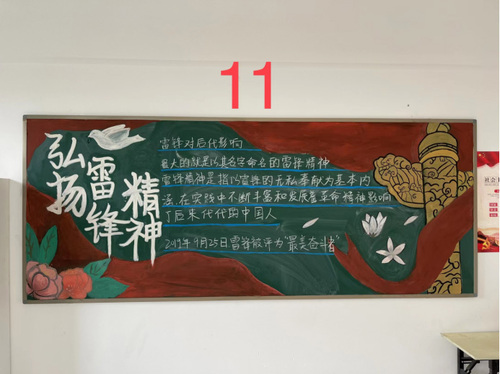 11
弘扬
雷锋
精神
雷锋对后代影响
最大的就是以其名字命名的雷锋精神
雷锋精神是指以雷锋的无私奉献为基本内
涵,在实践中不断丰富和发展着革命精神影响
了后来代代的中国人
2019年9月25日雷锋被评为“最美奋斗者”